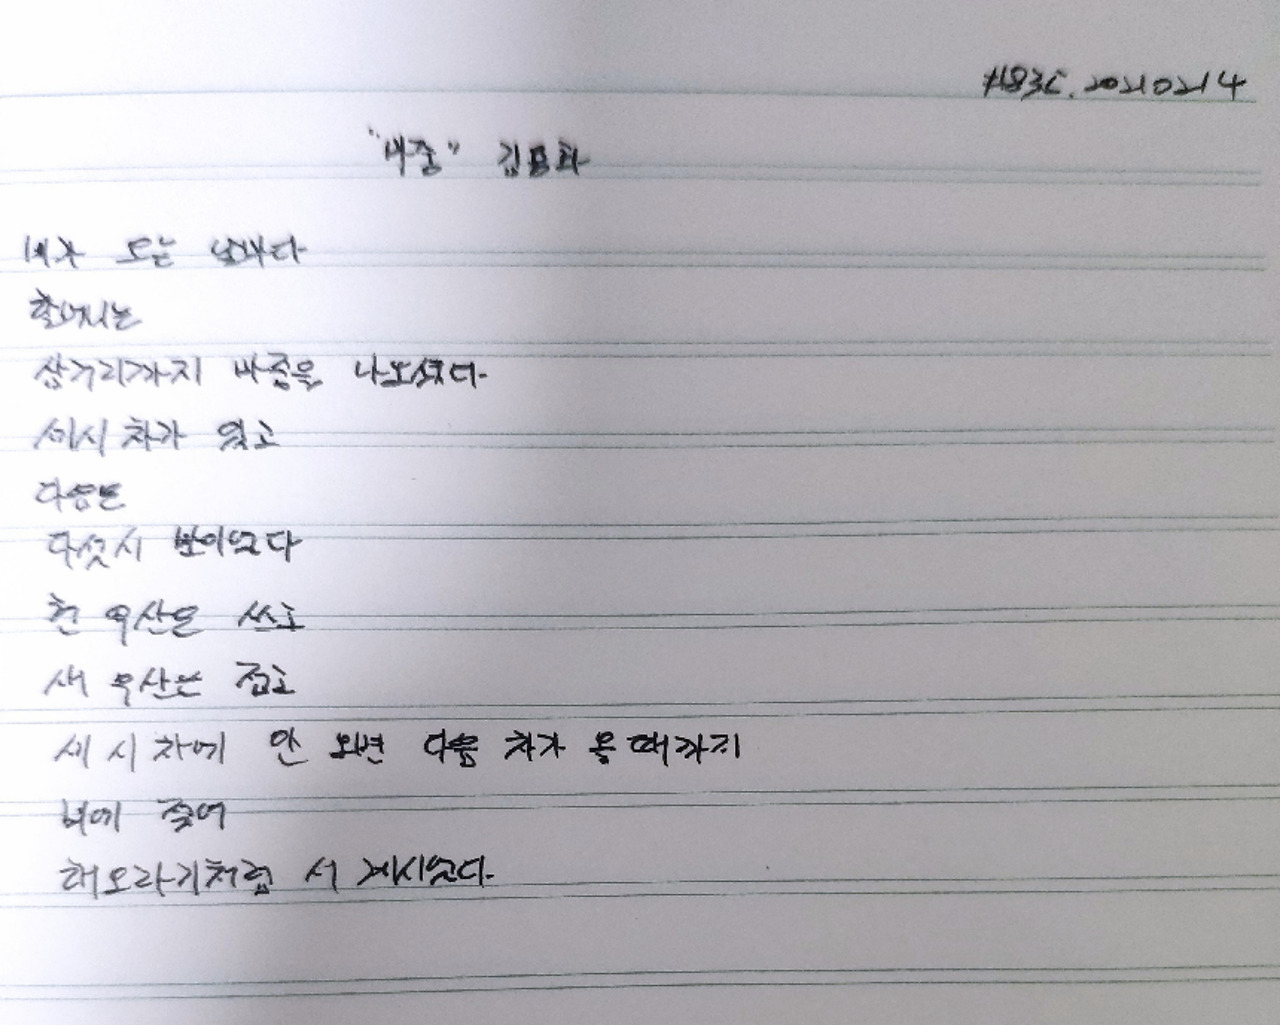 #83C. 20210214
"마중" 김용화
비가 오는 날마다
할머니는
삼거리까지 마중을 나오셨다.
세시 차가 있고
다음은
다섯시 반이었다
헌 우산은 쓰고
새 우산은 접고
세 시 차에 안 오면 다음 차가 올 때까지
비에 젖어
해오라기처럼 서 계시었다.